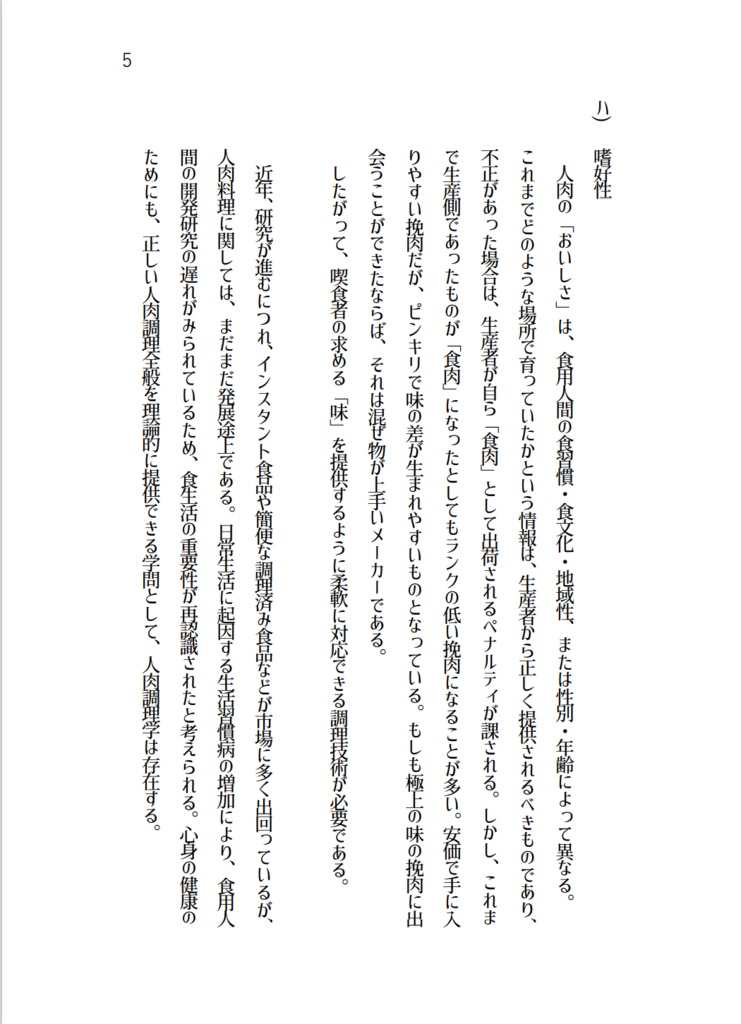 5
ハ)　嗜好性
人肉の「おいしさ」は、食用人間の食習慣・食文化・地域性、または性別・年齢によって異なる。
これまでどのような場所で育っていたかという情報は、生産者から正しく提供されるべきものであり、
不正があった場合は、生産者が自ら「食肉」として出荷されるペナルティが課される。しかし、これま
で生産側であったものが「食肉」になったとしてもランクの低い挽肉になることが多い。安価で手に入
りやすい挽肉だが、ピンキリで味の差が生まれやすいものとなっている。もしも極上の味の挽肉に出
会うことができたならば、それは混ぜ物が上手いメーカーである。
したがって、喫食者の求める「味」を提供するように柔軟に対応できる調理技術が必要である。
近年、研究が進むにつれ、インスタント食品や簡便な調理済み食品などが市場に多く出回っているが、
人肉料理に関しては、まだまだ発展途上である。日常生活に起因する生活習慣病の増加により、食用人
間の開発研究の遅れがみられているため、食生活の重要性が再認識されたと考えられる。心身の健康の
ためにも、正しい人肉調理全般を理論的に提供できる学問として、人肉調理学は存在する。